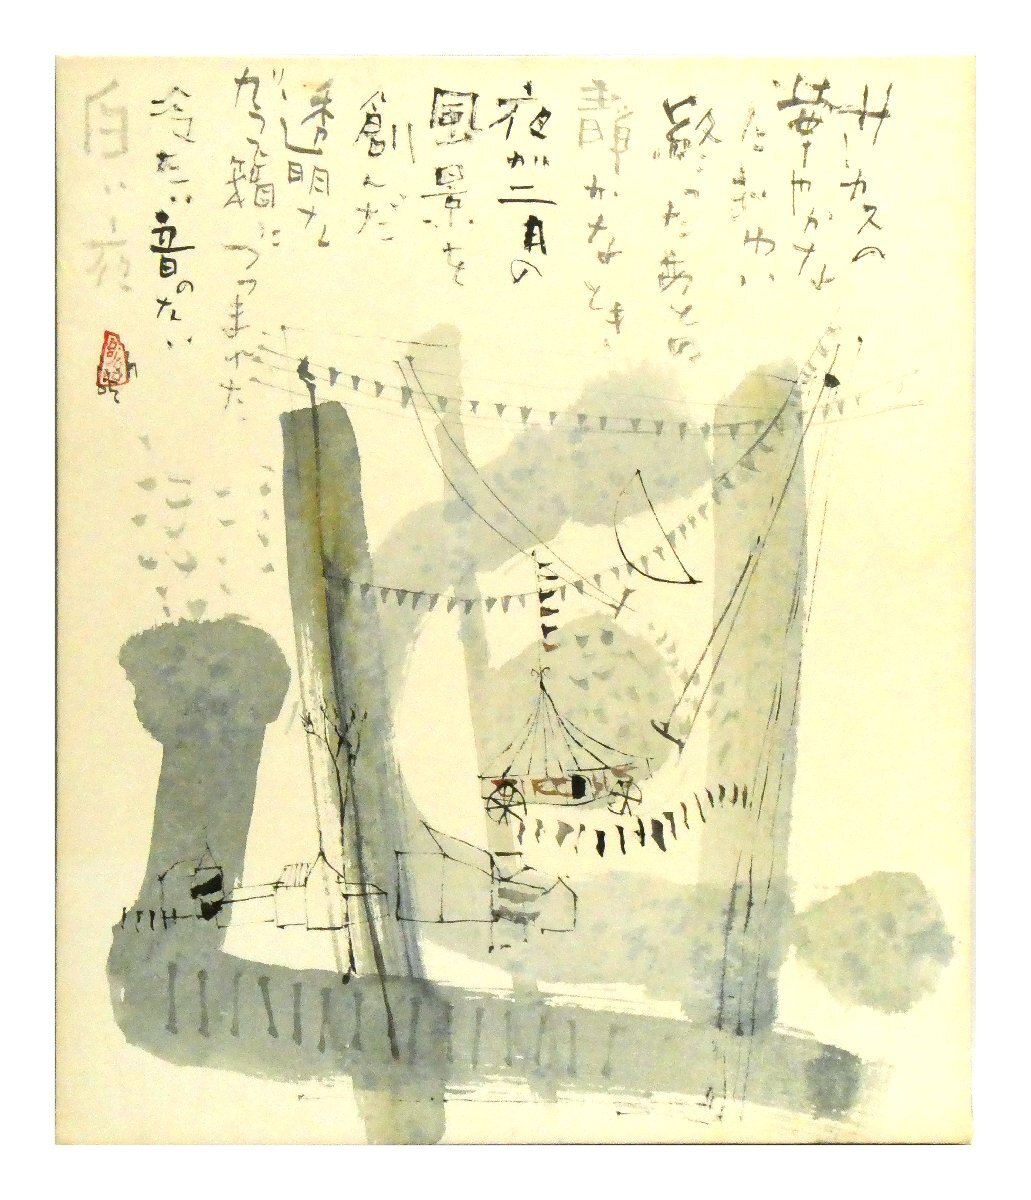 サーカスの
華やかな
にぎわい
終ったあとの
静かなとき
夜が二月の
風景を
創んだ
透明な
ガラス籠につつまれた
冷たい音のない
白い夜